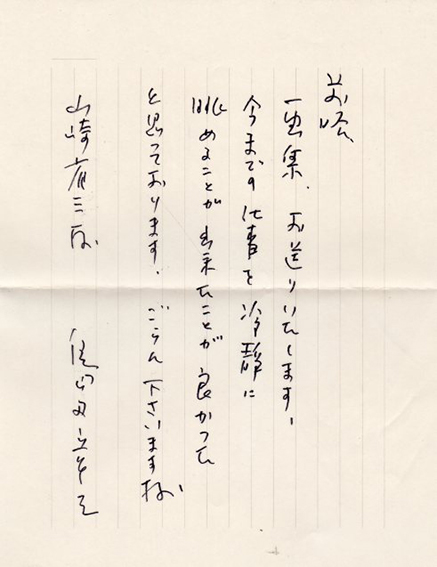 前略
画集、お送りいたします。
今までの仕事を冷静に
眺めることが出来たことが良かった
と思っております。ごらん下さいます様
山崎省三様